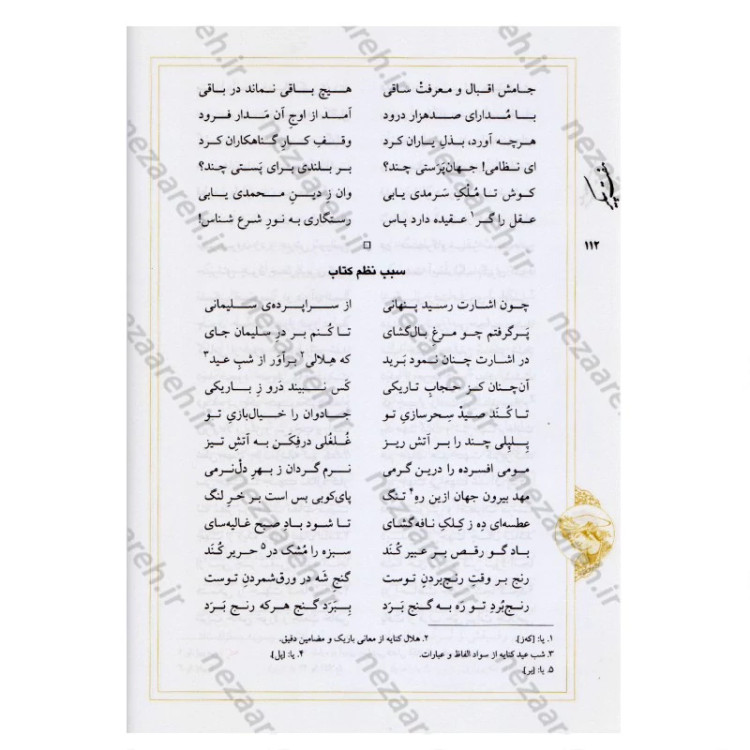 جامش اقبال و معرفتْ ساقی هیچ باقی نماند در باقی
با مُدارای صدهزار درود آمد از اوجِ آن مَدار فرود
هرچه آورد، بذلِ یاران کرد وقفِ کارِ گناهکاران کرد
ای نظامی! جهان‌پَرَستی چند؟ بر بلندی برای پَستی چند؟
کوش تا مُلکِ سَرمدی یابی وان ز دینِ محمدی یابی
عقل را گر۱ عقیده دارد پاس رستگاری به نورِ شرع شناس!
۱۱۲
سببِ نظم کتاب
چون اشارت رسید پنهانی از سراپرده‌ی سلیمانی
پَرگرفتم چو مرغِ بال‌گشای تا کُنم بر درِ سلیمان جای
در اشارت چنان نمود بَرید که هِلالی۲ برآور از شبِ عید۳
آن‌چنان کـز حجابِ تاریکی کَس نبیند دَرو زِ باریکی
تا کُند صیدْ سِحرسازیِ تو جادوان را خیال‌بازیِ تو
پِلپِلی چند را بر آتش ریز غُلغُلی درفِکَن به آتشِ تیز
مومی افسرده را درین گرمی نرم گردان ز بهرِ دل‌نرمی
مهد بیرون جهان ازین رهِ۴ تنگ پای‌کوبی بس است بر خرِ لنگ
عطسه‌ای دِه ز کِلکِ نافه‌گشای تا شود بادِ صبح غالیه‌سای
باد گو رقص بر عبیر کُند سبزه را مُشک در۵ حریر کُند
رنج بر وقتِ رنج‌بردنِ توست گنجِ شَه در ورق‌شمردنِ توست
رنج‌بُرد تو رَه به گنج بَرَد بِبَرَد گنج هرکه رنج بَرَد
۱. یا: [که‌ز]. ۲. هلال کنایه از معانی باریک و مضامین دقیق.
۳. شب عید کنایه از سواد الفاظ و عبارات. ۴. یا: [پل].
۵. یا: [بر].
nezaareh.ir